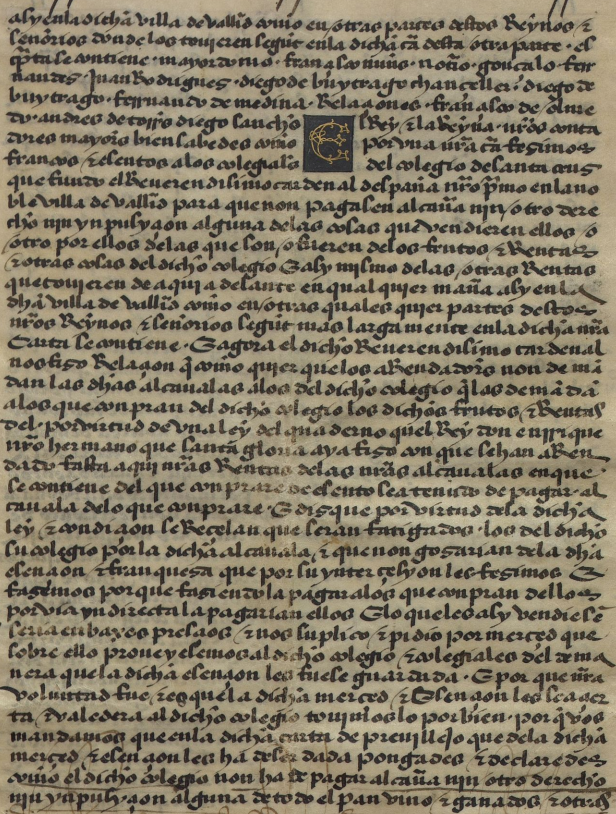 asy en la dicha villa de vallid como en otras partes destos Reynos &
señorios donde los touieren segunt en la dicha cª desta otra parte · es
cpta se contiene · mayordomo · françisco nuns · notº · gonçalo · fer
nandes · Juan Rodrigues · diego de buytrago chanceller · diego de
buytrago · ferrnando de medina · Relaçiones · françisco de olme
do · andres de torrs diego sancho el Rey & la Reyna · nros conta
dores mayors bien sabedes como por vna nra cª fezimos
francos & esentos a los colegials del colegio de santa cruz
que fundo el Reuerendisimo cardenal despaña nro pmo en la no
ble villa de vallid para que non pagasen alcauala nin otro dere
cho nin ynpusyçion alguna de las cosas que vendieren ellos o
otro por ellos de las que son o fueren de los frutos & Rentas
& otras cosas del dicho colegio E asy mismo de las otras Rentas
que touieren de aqui adelante en qual quier maña asy en la
dha villa de vallid como en otras quales quier partes destos
nros Reynos & señorios segunt mas larga mente en la dicha nra
Carta se contiene · E agora el dicho Reuerendisimo cardenal
nos fizo Relaçion q como quier que los aRendadors non deman
dan las dhas alcaualas a los del dicho colegio q las demandã
a los que conpran del dicho colegio los dichos frutos & Rentas
del por virtud de vna ley del quaderno quel Rey don enrrique
nro hermano que santa gloria aya fizo con que se han aRen
dado fasta aqui nras Rentas de las nras alcaualas en que
se contiene del que conprare de esento sea tenido de pagar al
cauala de lo que conprare · E dis que por virtud de la dicha
ley & condiçion se Reçelan que seran fatigados · los del dicho
su colegio por la dicha alcauala & que non gozarian de la dha
esençion & franquesa que por su ynterçesyon les fezimos E
fazemos por que faziendo la pagar a los que conpran dellos
por via yndirecta la pagarian ellos E lo que les asy vendiese
seria en baxos presçios & nos suplico & pidio por merced que
sobre ello proueyesemos al dicho colegio & colegiales del de ma
nera que la dicha esençion les fuese guardada · E por que nra
voluntad fue & es que la dicha merced & Esençion les sea çier
ta & valedera al dicho colegio touimos lo por bien · por q vos
mandamos que en la dicha carta de preuillejo que de la dicha
merced & esençion les ha de ser dada pongades & declaredes
como el dicho colegio non ha de pagar alcaua nin otro derecho
nin ynpusyçion alguna de todo el pan vino & ganados & otras